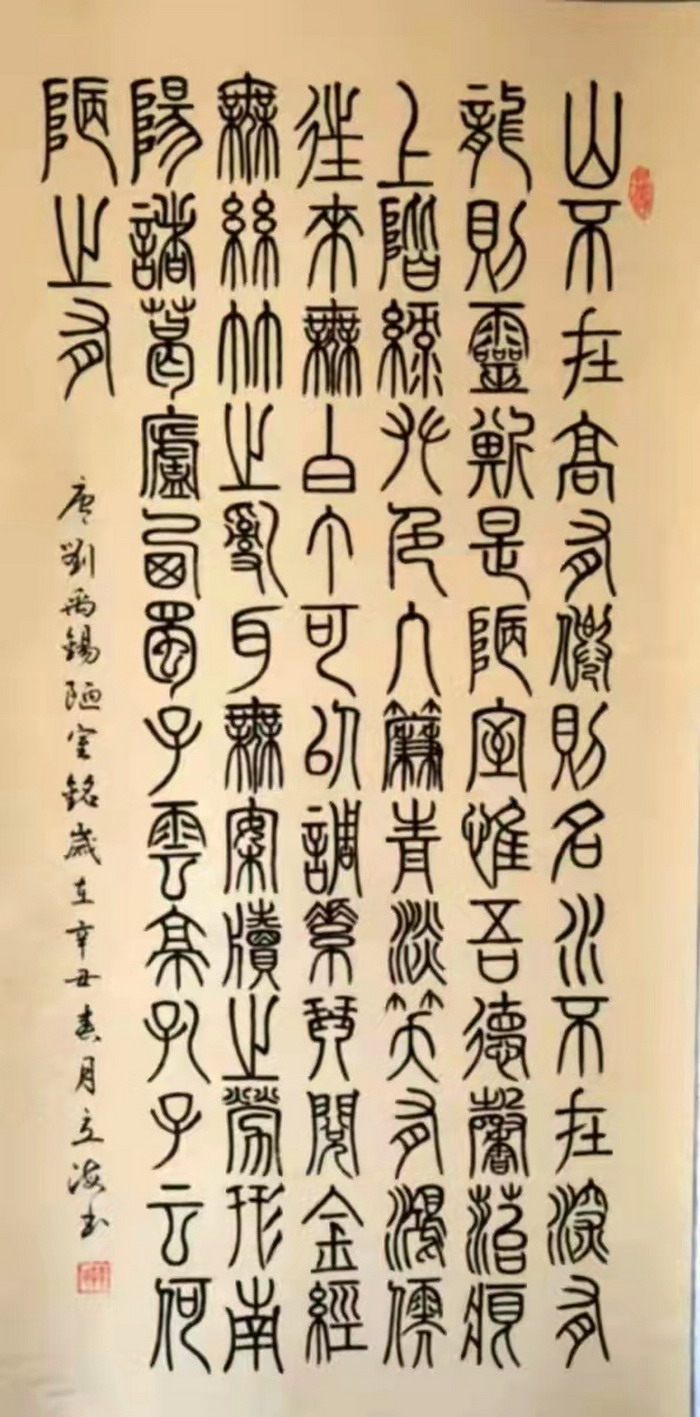 山不在高有僊則名水不在深有
龍則靈斯是陋室惟吾德馨菭痕
上階綠艸色入簾青淡笑有鴻儒
往來無白丁可以調素琴閱金經
無絲竹之亂耳無案牘之勞形南
陽諸葛廬西蜀子雲亭孔子云何
陋之有
唐劉禹錫陋室銘歲在辛丑春月立海書